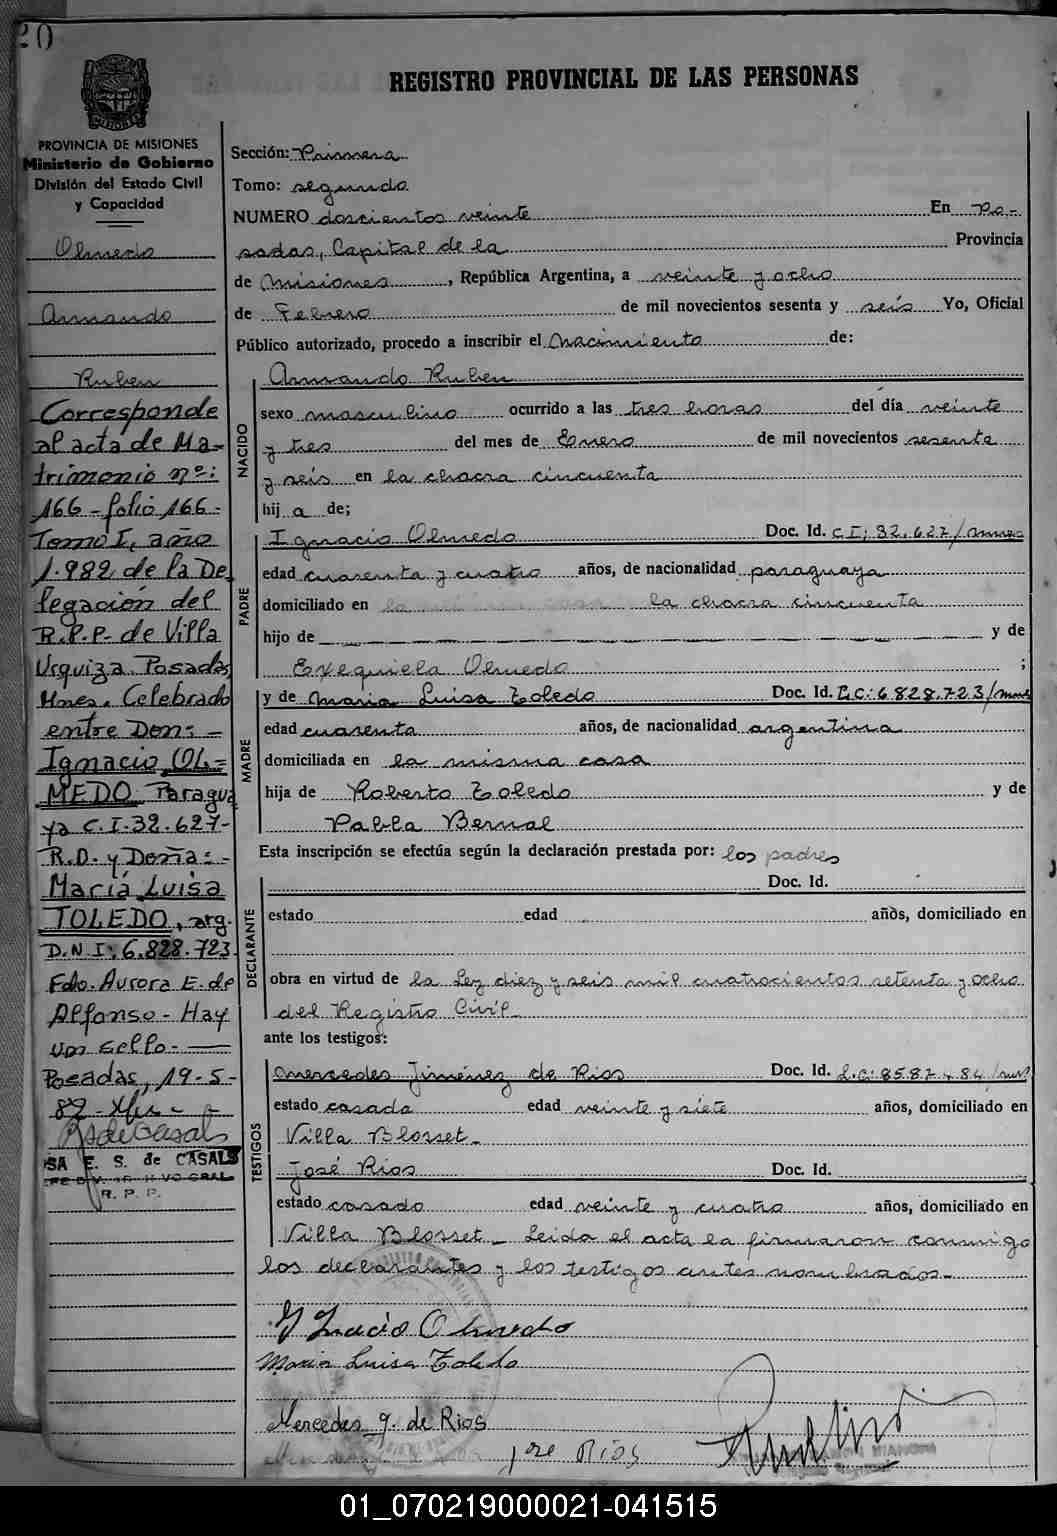 20
REGISTRO PROVINCIAL DE LAS PERSONAS
PROVINCIA DE MISIONES
Ministerio de Gobierno
División del Estado Civil
y Capacidad
Olmedo
Armando
Ruben
Corresponde
al acta de Ma-
trimonio nº:
166 - folio 166 -
Tomo I, año
1.982 de la De
legación del
R.P.P. de Villa
Urquiza. Posadas,
Mnes. Celebrado
entre Don: -
Ignacio OL=
MEDO Paragua
ya C.I. 32.627-
R.D. y Doña: -
María Luisa
TOLEDO, arg.
D.N.I: 6.828.723.
Fdo. Aurora E. de
Alfonso - Hay
un sello. -
Posadas, 19-5-
82 -
SA E. S. de CASALS
R. P. P.
Sección: Primera
Tomo: segundo
NUMERO doscientos veinte En Po-
sadas, Capital de la Provincia
de Misiones, República Argentina, a veinte y ocho
de Febrero de mil novecientos sesenta y seis Yo, Oficial
Público autorizado, procedo a inscribir el Nacimiento de:
NACIDO
Armando Ruben
sexo masculino ocurrido a las tres horas del día veinte
y tres del mes de Enero de mil novecientos sesenta
y seis en la chacra cincuenta
hij a de;
PADRE
Ignacio Olmedo Doc. Id. C.I; 32.627/mnes
edad cuarenta y cuatro años, de nacionalidad paraguaya
domiciliado en la chacra cincuenta
hijo de y de
Exequiela Olmedo ;
MADRE
y de Maria Luisa Toledo Doc. Id. L.C: 6.828.723/mnes
edad cuarenta años, de nacionalidad argentina
domiciliada en la misma casa
hija de Roberto Toledo y de
Pabla Bernal
Esta inscripción se efectúa según la declaración prestada por: los padres
DECLARANTE
Doc. Id.
estado edad años, domiciliado en
obra en virtud de la Ley diez y seis mil cuatrocientos setenta y ocho
del Registro Civil_
ante los testigos:
TESTIGOS
Mercedes Jiménez de Rios Doc. Id. L.C: 8587484/mns
estado casada edad veinte y siete años, domiciliado en
Villa Blosset_
José Rios Doc. Id.
estado casado edad veinte y cuatro años, domiciliado en
Villa Blosset_ Leida el acta la firmaron conmigo
los declarantes y los testigos antes nombrados_
Ygnacio Olmedo
Maria Luisa Toledo
Mercedes J. de Rios
José Rios
01_070219000021-041515